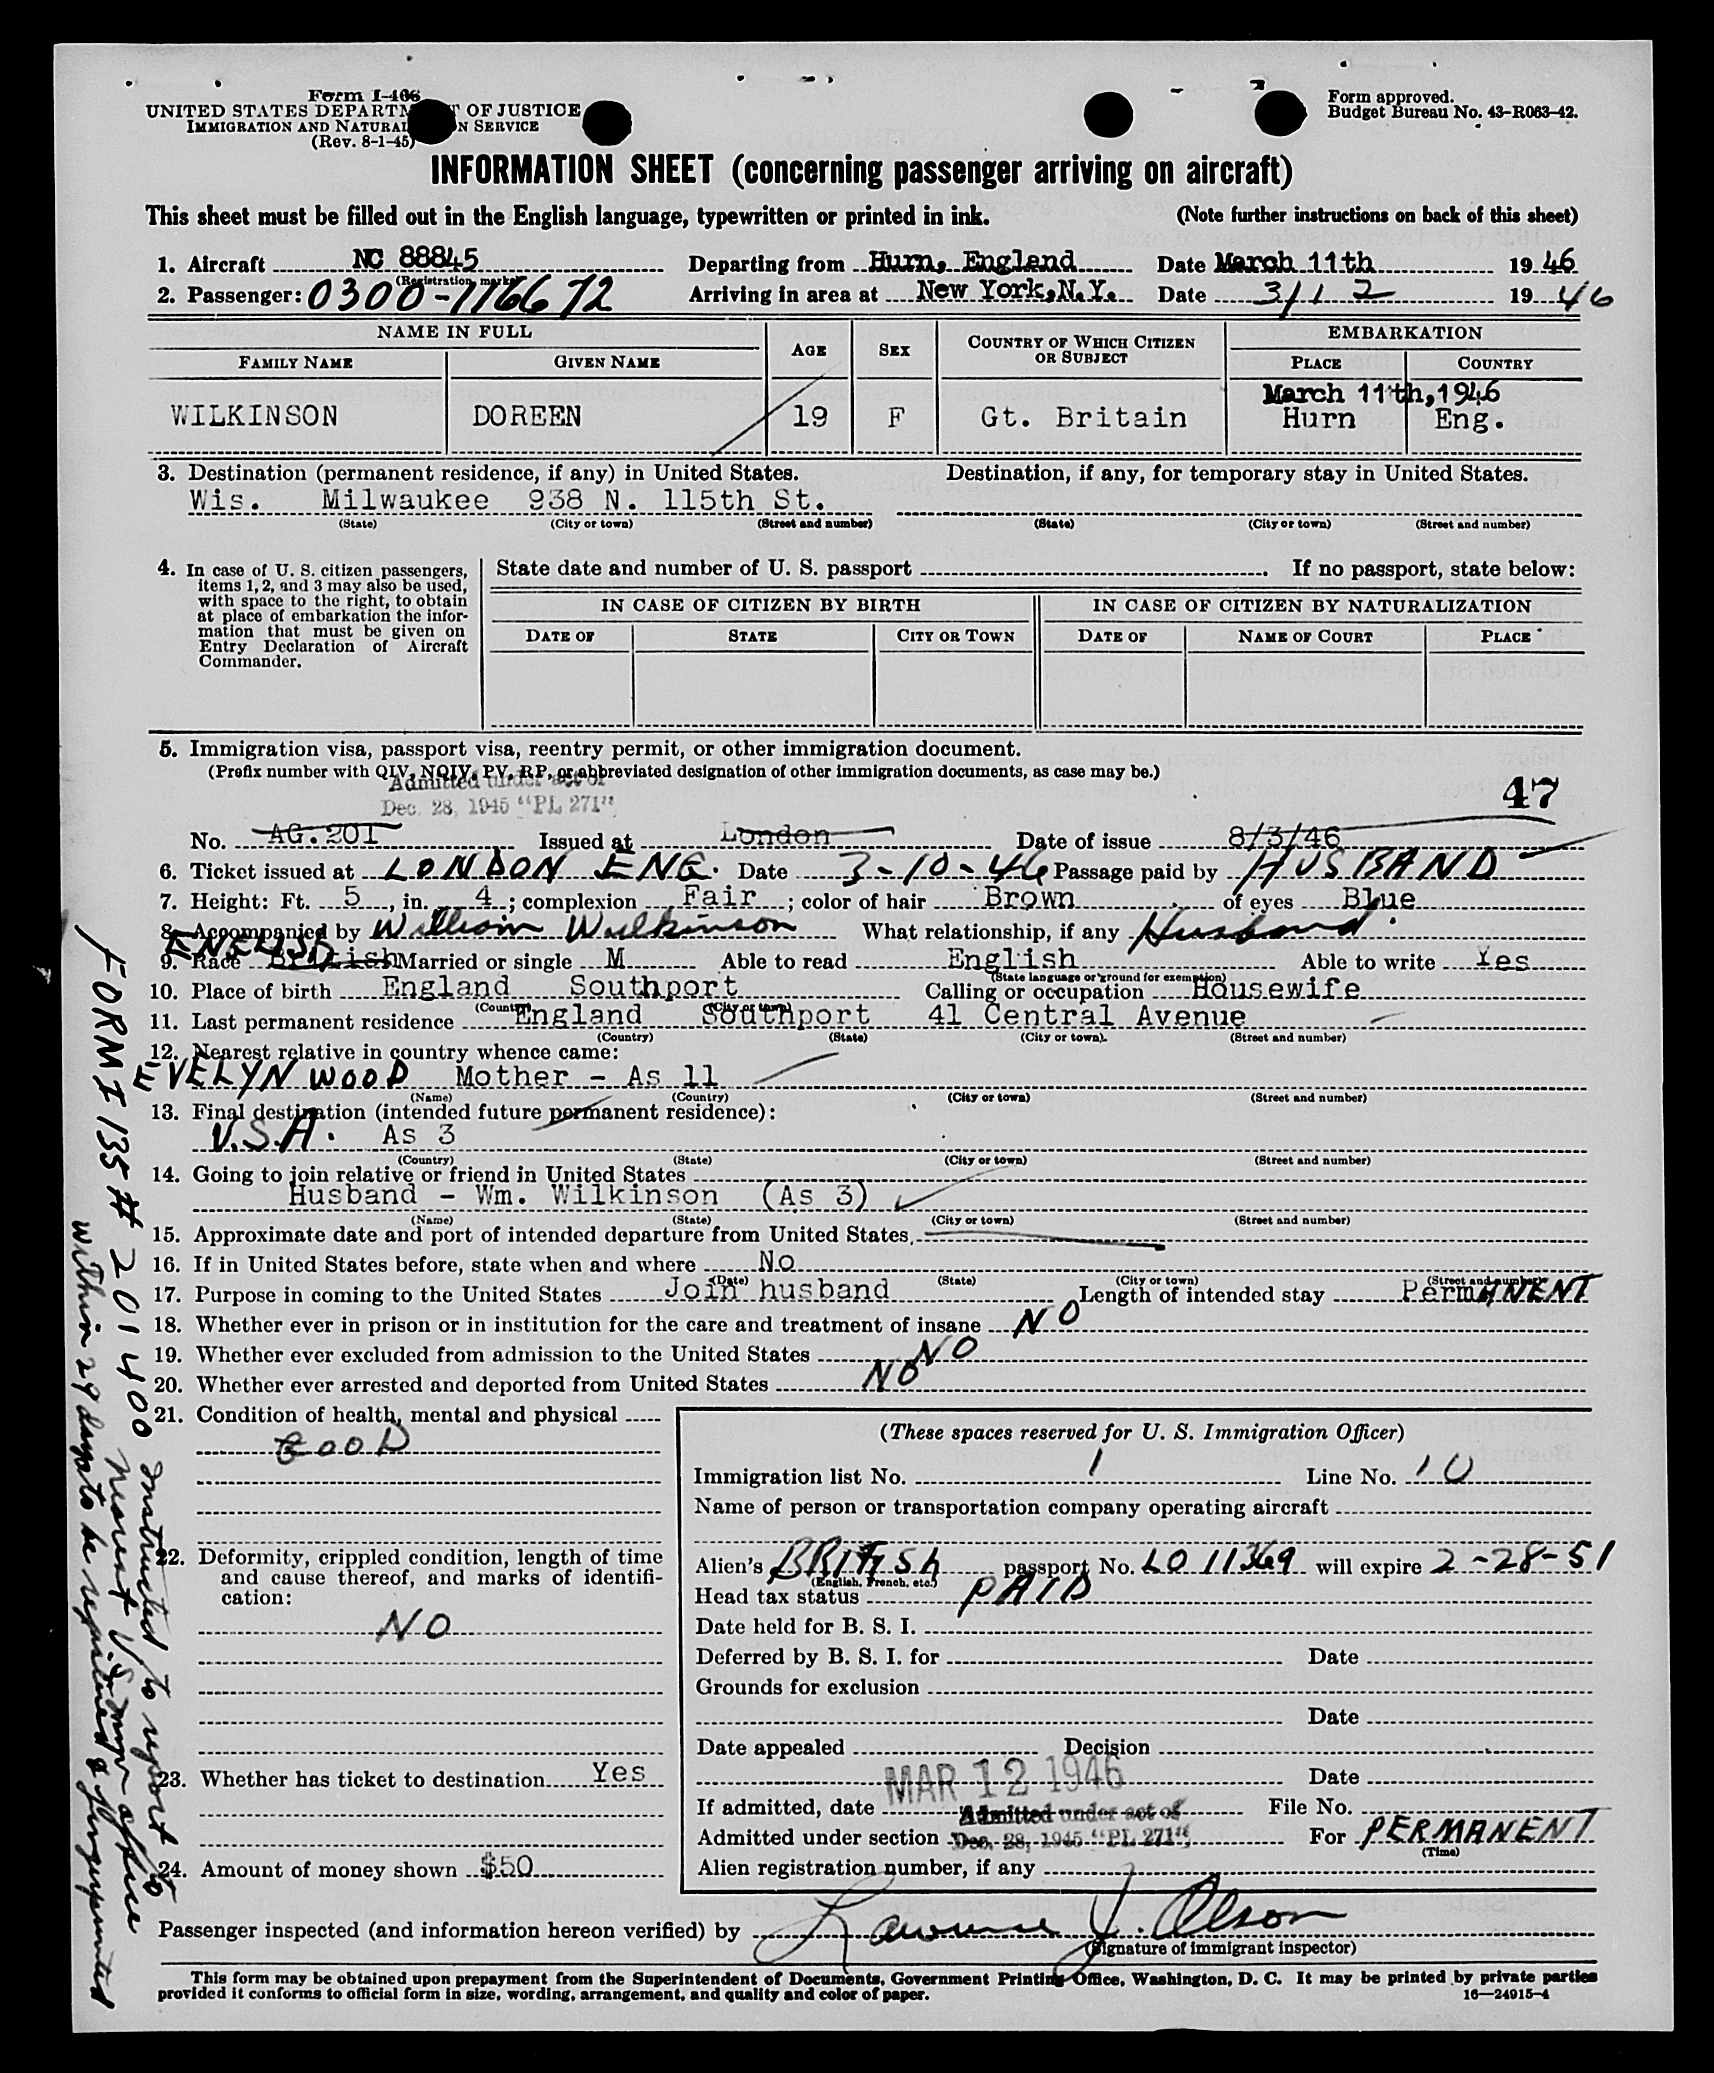 Form I-466
UNITED STATES DEPARTM T OF JUSTICE
IMMIGRATION AND NATURAL N SERVICE
(Rev. 8-1-45)
Form approved.
Budget Bureau No. 43-R063-42.
INFORMATION SHEET (concerning passenger arriving on aircraft)
This sheet must be filled out in the English language, typewritten or printed in ink. (Note further instructions on back of this sheet)
1. Aircraft NC 88845 Departing from Hurn, England Date March 11th 19 46
(Registration marks)
2. Passenger: 0300-116672 Arriving in area at New York, N.Y. Date 3/12 19 46
NAME IN FULL AGE SEX COUNTRY OF WHICH CITIZEN OR SUBJECT EMBARKATION
FAMILY NAME GIVEN NAME PLACE COUNTRY
March 11th, 1946
WILKINSON DOREEN 19 F Gt. Britain Hurn Eng.
3. Destination (permanent residence, if any) in United States. Destination, if any, for temporary stay in United States.
Wis. Milwaukee 938 N. 115th St.
(State) (City or town) (Street and number) (State) (City or town) (Street and number)
4. In case of U. S. citizen passengers, items 1, 2, and 3 may also be used, with space to the right, to obtain at place of embarkation the information that must be given on Entry Declaration of Aircraft Commander.
State date and number of U. S. passport . If no passport, state below:
IN CASE OF CITIZEN BY BIRTH IN CASE OF CITIZEN BY NATURALIZATION
DATE OF STATE CITY OR TOWN DATE OF NAME OF COURT PLACE
5. Immigration visa, passport visa, reentry permit, or other immigration document.
(Prefix number with QIV, NQIV, PV, RP, or abbreviated designation of other immigration documents, as case may be.)
Admitted under act of
Dec. 28, 1945 "PL 271"
47
No. AG.201 Issued at London Date of issue 8/3/46
6. Ticket issued at LONDON ENG. Date 3-10-46 Passage paid by HUSBAND
7. Height: Ft. 5, in. 4; complexion Fair; color of hair Brown of eyes Blue
8. Accompanied by William Wilkinson What relationship, if any Husband.
ENGLISH
9. Race British Married or single M Able to read English Able to write Yes
(State language or ground for exemption)
10. Place of birth England Southport Calling or occupation Housewife
(Country) (City or town)
11. Last permanent residence England Southport 41 Central Avenue
(Country) (State) (City or town). (Street and number)
12. Nearest relative in country whence came:
EVELYN WOOD Mother - As 11
(Name) (Country) (City or town) (Street and number)
13. Final destination (intended future permanent residence):
U.S.A. As 3
(Country) (State) (City or town) (Street and number)
14. Going to join relative or friend in United States
Husband - Wm. Wilkinson (As 3)
(Name) (State) (City or town) (Street and number)
15. Approximate date and port of intended departure from United States.
16. If in United States before, state when and where No
(Date) (State) (City or town) (Street and number)
17. Purpose in coming to the United States Join husband Length of intended stay PermANENT
18. Whether ever in prison or in institution for the care and treatment of insane NO
19. Whether ever excluded from admission to the United States NO
20. Whether ever arrested and deported from United States NO
21. Condition of health, mental and physical
GOOD
22. Deformity, crippled condition, length of time and cause thereof, and marks of identification:
NO
23. Whether has ticket to destination Yes
24. Amount of money shown $50
(These spaces reserved for U. S. Immigration Officer)
Immigration list No. 1 Line No. 10
Name of person or transportation company operating aircraft
Alien's BRITISH passport No. LO 11369 will expire 2-28-51
(English, French, etc.)
Head tax status PAID
Date held for B. S. I.
Deferred by B. S. I. for Date
Grounds for exclusion
Date
Date appealed Decision
Date
If admitted, date MAR 12 1946 File No.
Admitted under section Admitted under act of Dec. 28, 1945 "PL 271" For PERMANENT
(Time)
Alien registration number, if any
Passenger inspected (and information hereon verified) by Lawrence J. Olson
(Signature of immigrant inspector)
This form may be obtained upon prepayment from the Superintendent of Documents, Government Printing Office, Washington, D. C. It may be printed by private parties
provided it conforms to official form in size, wording, arrangement, and quality and color of paper. 16—24915-4
FORM I 135 # 201400 Instructed to report to
nearest U.S. Immr office
within 29 days to be registered & fingerprinted